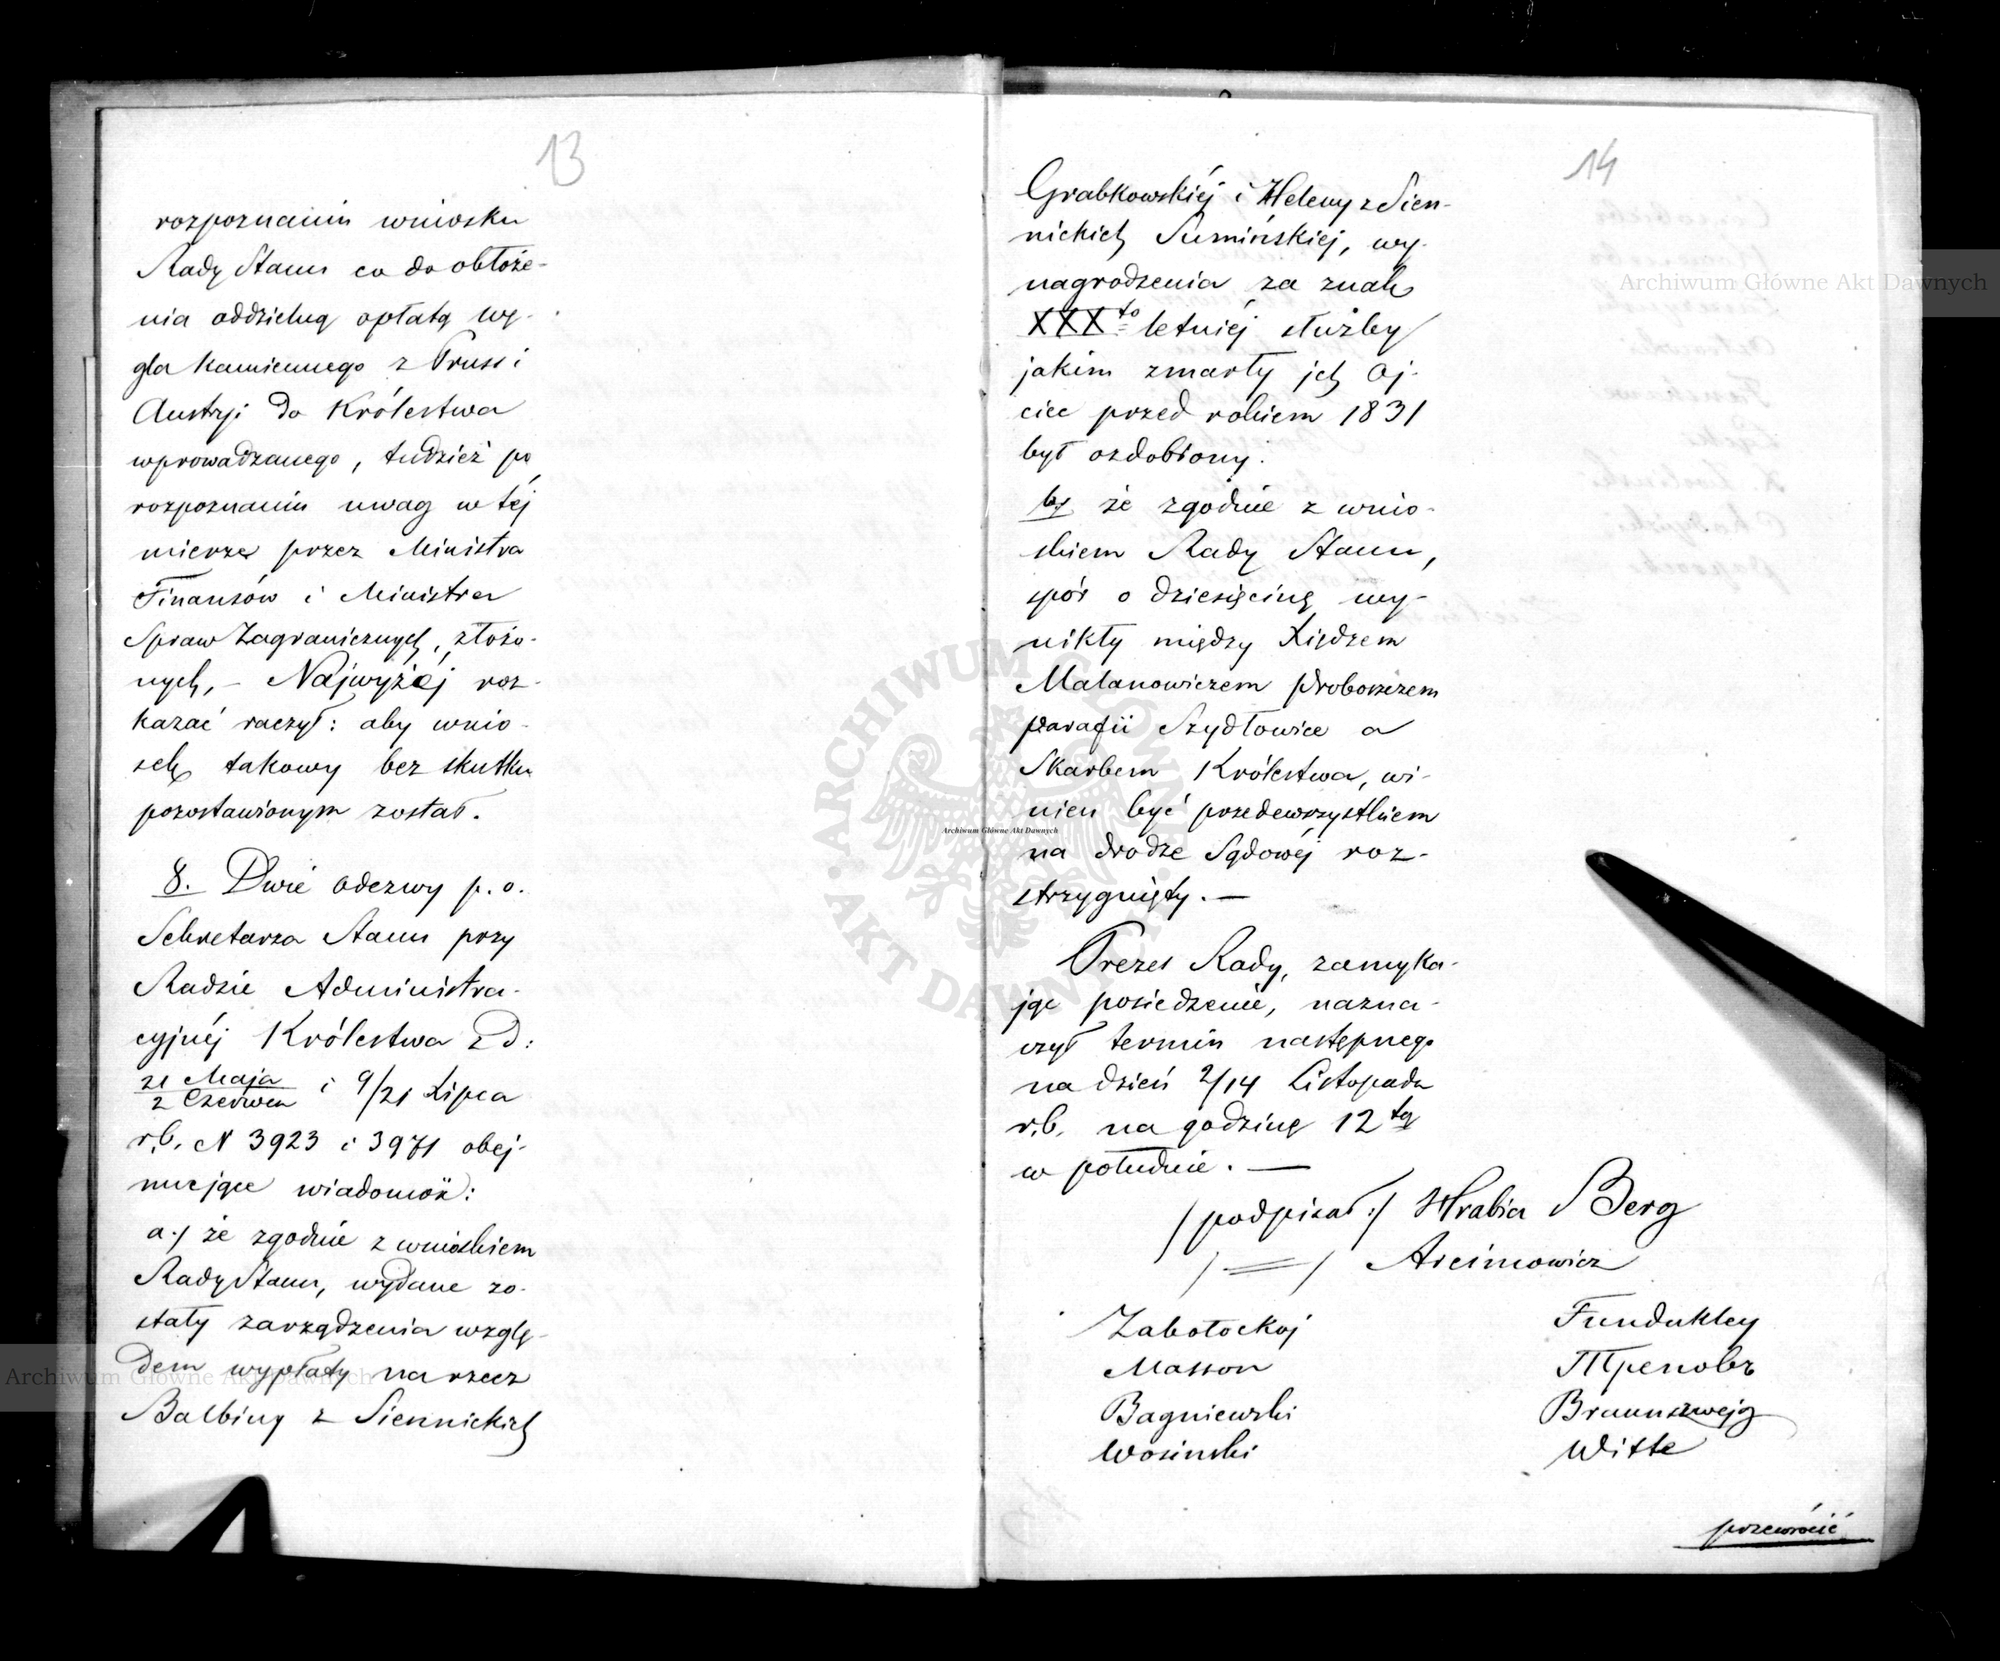 13
rozpoznaniu wniosku
Rady Stanu co do obłoże-
nia oddzielną opłatą wę-
gla kamiennego z Pruss i
Austryi do Królestwa
wprowadzanego, tudzież po
rozpoznaniu uwag w téj
mierze przez Ministra
Finansów i Ministra
Spraw Zagranicznych, złożo-
nych, – Najwyżéj roz-
kazać raczył: aby wnio-
sek takowy bez skutku
pozostawionym został.
8. Dwie odezwy p. o.
Sekretarza Stanu przy
Radzie Administra-
cyjnéj Królestwa z d:
21 Maja / 2 Czerwca i 9/21 Lipca
r.b. N 3923 i 3971 obej-
mujące wiadomość:
a./ że zgodnie z wnioskiem
Rady Stanu, wydane zo-
stały zarządzenia wzglę-
dem wypłaty na rzecz
Balbiny z Siennickich
14
Grabkowskiéj i Heleny z Sien-
nickich Sumińskiéj, wy-
nagrodzenia za znak
XXX to letniéj służby
jakim zmarły ich Oj-
ciec przed rokiem 1831
był ozdobiony.
b/ że zgodnie z wnio-
skiem Rady Stanu,
spór o dziesięcinę wy-
nikły między Xiędzem
Malanowiczem Proboszczem
parafii Szydłowice a
Skarbem Królestwa, wi-
nien być przedewszystkiem
na drodze Sądowéj roz-
strzygnięty. —
Prezes Rady, zamyka-
jąc posiedzenie, nazna-
czył termin następnego
na dzień 2/14 Listopada
r.b. na godzinę 12 tą
w południe. —
/podpisał:/ Hrabia Berg
/ = / Arcimowicz
Zabołockoj Fundukley
Masson Треповъ
Bagniewski Braunszwejg
Wosinski Witte
przewrócić
Archiwum Główne Akt Dawnych
Archiwum Główne Akt Dawnych
Archiwum Główne Akt Dawnych
ARCHIWUM GŁÓWNE AKT DAWNYCH